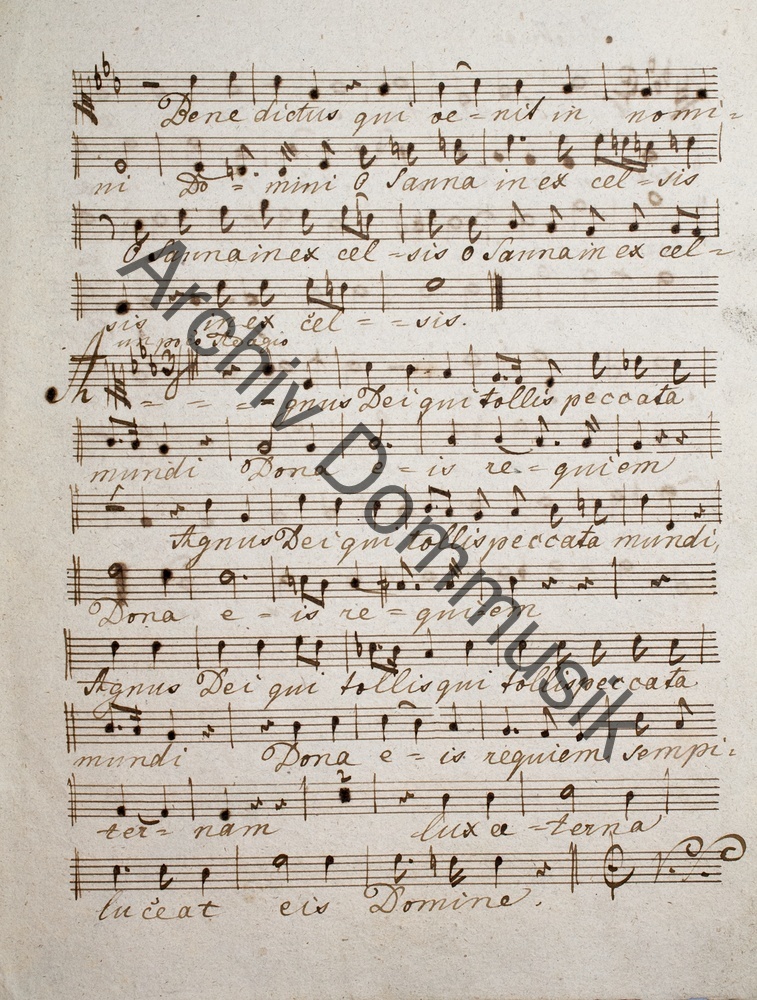 Benedictus qui ve=nit in nomi=
ni Do=mini O Sanna in ex cel=sis
O Sanna in ex cel=sis O Sanna in ex cel=
sis in ex cel==sis.
un poco Adagio
A====gnus Dei qui tollis peccata
mundi Dona e=is re=quiem
Agnus Dei qui tollis peccata mundi,
Dona e=is re=quiem
Agnus Dei qui tollis qui tollis peccata
mundi Dona e=is requiem sempi=
ter=nam lux ae=terna
luceat eis Domine.
Archiv Dommusik